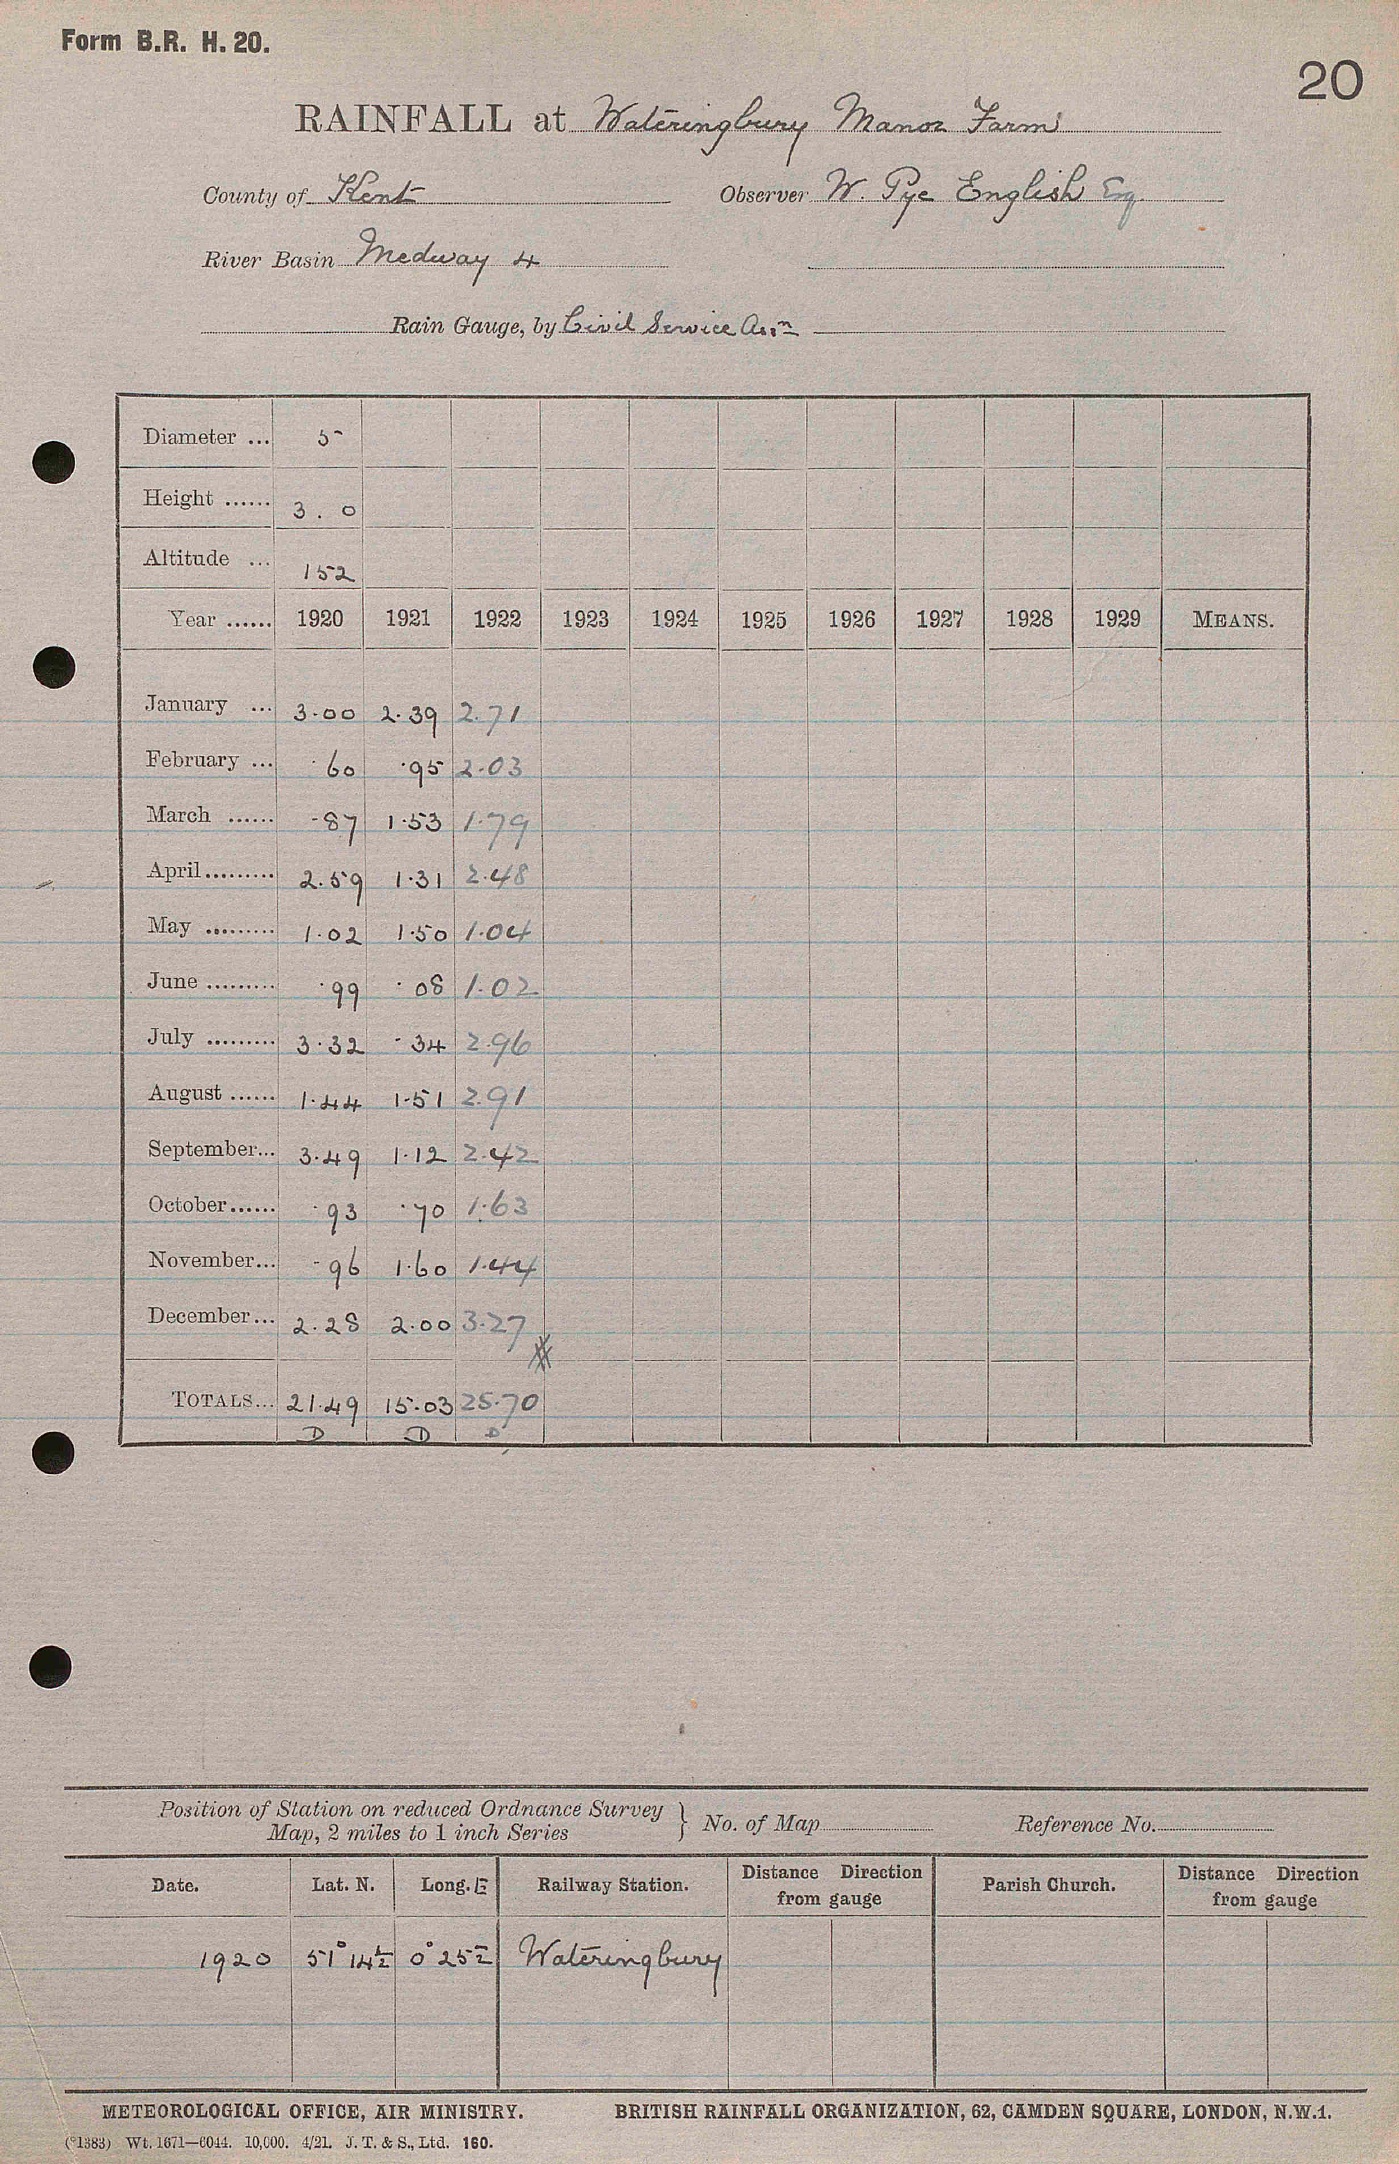 Form B.R. H. 20.
20
RAINFALL at Wateringbury Manor Farm
County of Kent Observer W. Pye English Esq.
River Basin Medway 4
Rain Gauge, by Civil Service Assn
Diameter ... 5
Height ...... 3 . 0
Altitude ... 152
Year ...... 1920 1921 1922 1923 1924 1925 1926 1927 1928 1929 MEANS.
January ... 3.00 2.39 2.71
February ... .60 .95 2.03
March ...... .87 1.53 1.79
April ......... 2.59 1.31 2.48
May ......... 1.02 1.50 1.04
June ......... .99 .08 1.02
July ......... 3.32 .34 2.96
August ...... 1.44 1.51 2.91
September... 3.49 1.12 2.42
October...... .93 .70 1.63
November... .96 1.60 1.44
December... 2.28 2.00 3.27
TOTALS... 21.49 15.03 25.70
D D D
Position of Station on reduced Ordnance Survey
Map, 2 miles to 1 inch Series } No. of Map Reference No.
Date. Lat. N. Long. E Railway Station. Distance Direction from gauge Parish Church. Distance Direction from gauge
1920 51° 14½ 0° 25½ Wateringbury
METEOROLOGICAL OFFICE, AIR MINISTRY. BRITISH RAINFALL ORGANIZATION, 62, CAMDEN SQUARE, LONDON, N.W.1.
(*1383) Wt. 1671—6044. 10,000. 4/21. J. T. & S., Ltd. 160.